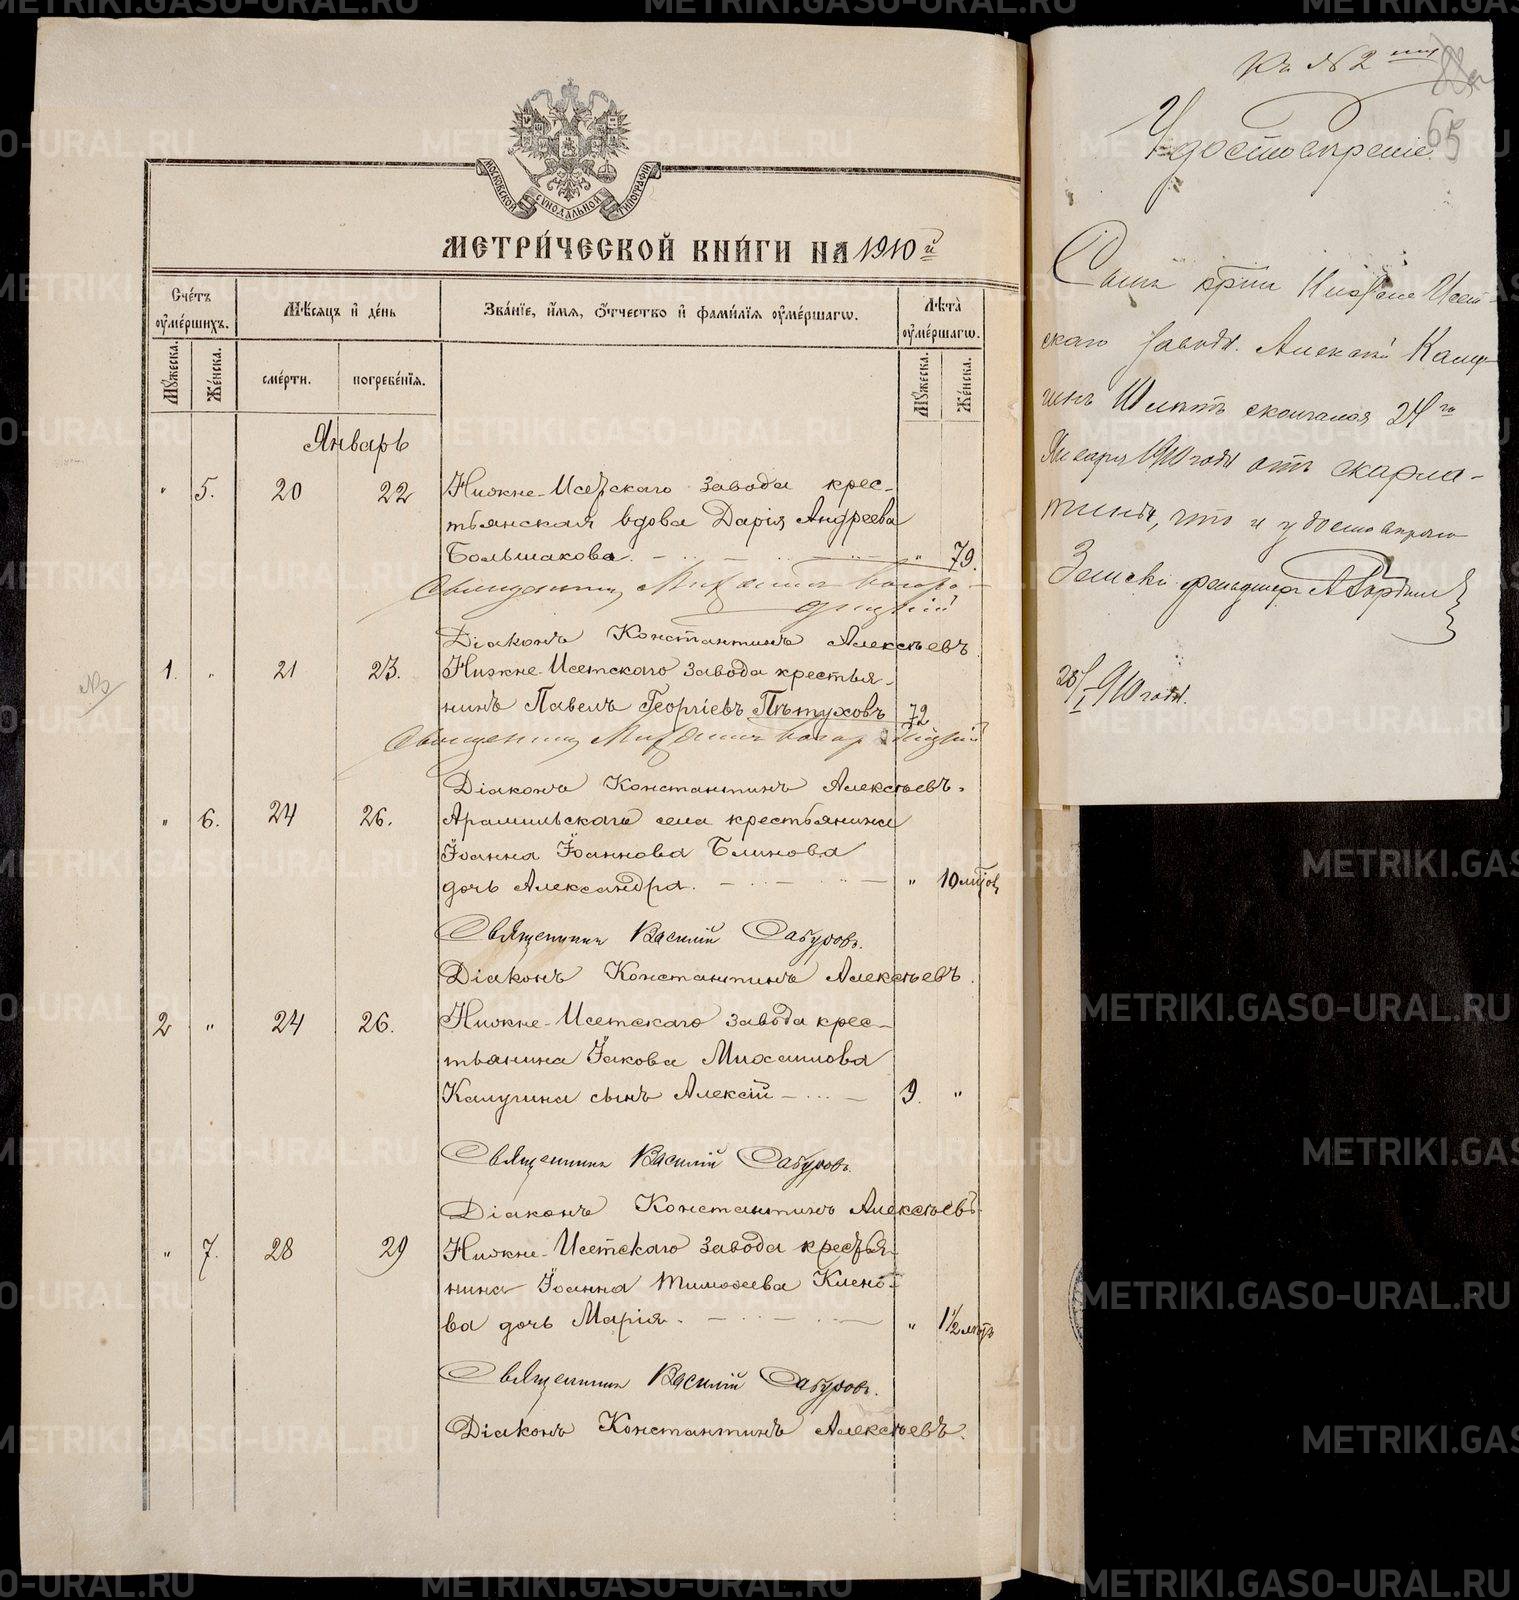 МОСКОВСКОЙ СѴНОДАЛЬНОЙ ТИПОГРАФІИ
МЕТРИ́ЧЕСКОЙ КНИ́ГИ НА 1910 й
Сче́тъ ᲂу҆ме́ршихъ.
Мѣ́сяцъ и҆ де́нь
Зва́нїе, и҆́мѧ, ѻ҆́тчество и҆ фами́лїѧ ᲂу҆ме́ршагѡ.
Лѣ́та ᲂу҆ме́ршагѡ.
Мꙋ́жеска.
Же́нска.
сме́рти.
погребе́нїѧ.
Мꙋ́жеска.
Же́нска.
Январь
" 5. 20 22 Нижне-Исетскаго завода крес-
тьянская вдова Дарія Андреева
Большакова. " 79.
Священник Михаил Богоро-
дицкій
Діаконъ Константинъ Алексѣевъ.
1. " 21 23. Нижне-Исетскаго завода крестья-
нинъ Павелъ Георгіевъ Пѣтуховъ 72
Священник Михаил Богородицкій
Діаконъ Константинъ Алексѣевъ.
" 6. 24 26. Арамильскаго села крестьянина
Іоанна Іоаннова Блинова
дочь Александра. " 10 м
Священник Василій Сабуровъ.
Діаконъ Константинъ Алексѣевъ.
2 " 24 26. Нижне-Исетскаго завода крес-
тьянина Іакова Михаилова
Калугина сынъ Алексій 9. "
Священник Василій Сабуровъ.
Діаконъ Константинъ Алексѣевъ.
" 7. 28 29 Нижне-Исетскаго завода крестья-
нина Іоанна Тимоѳеева Клено-
ва дочь Марія. " 1½ лѣтъ
Священник Василій Сабуровъ.
Діаконъ Константинъ Алексѣевъ.
№2
Къ №2
65
Удостовѣреніе
Сынъ крин Нижне Исет-
скаго завода. Алексѣй Калу-
гинъ 10 лѣтъ скончался 24 го
Января 1910 года отъ скарла-
тины, что и удостовѣряю
Земскій фельдшеръ
28/I 910 года.
METRIKI.GASO-URAL.RU